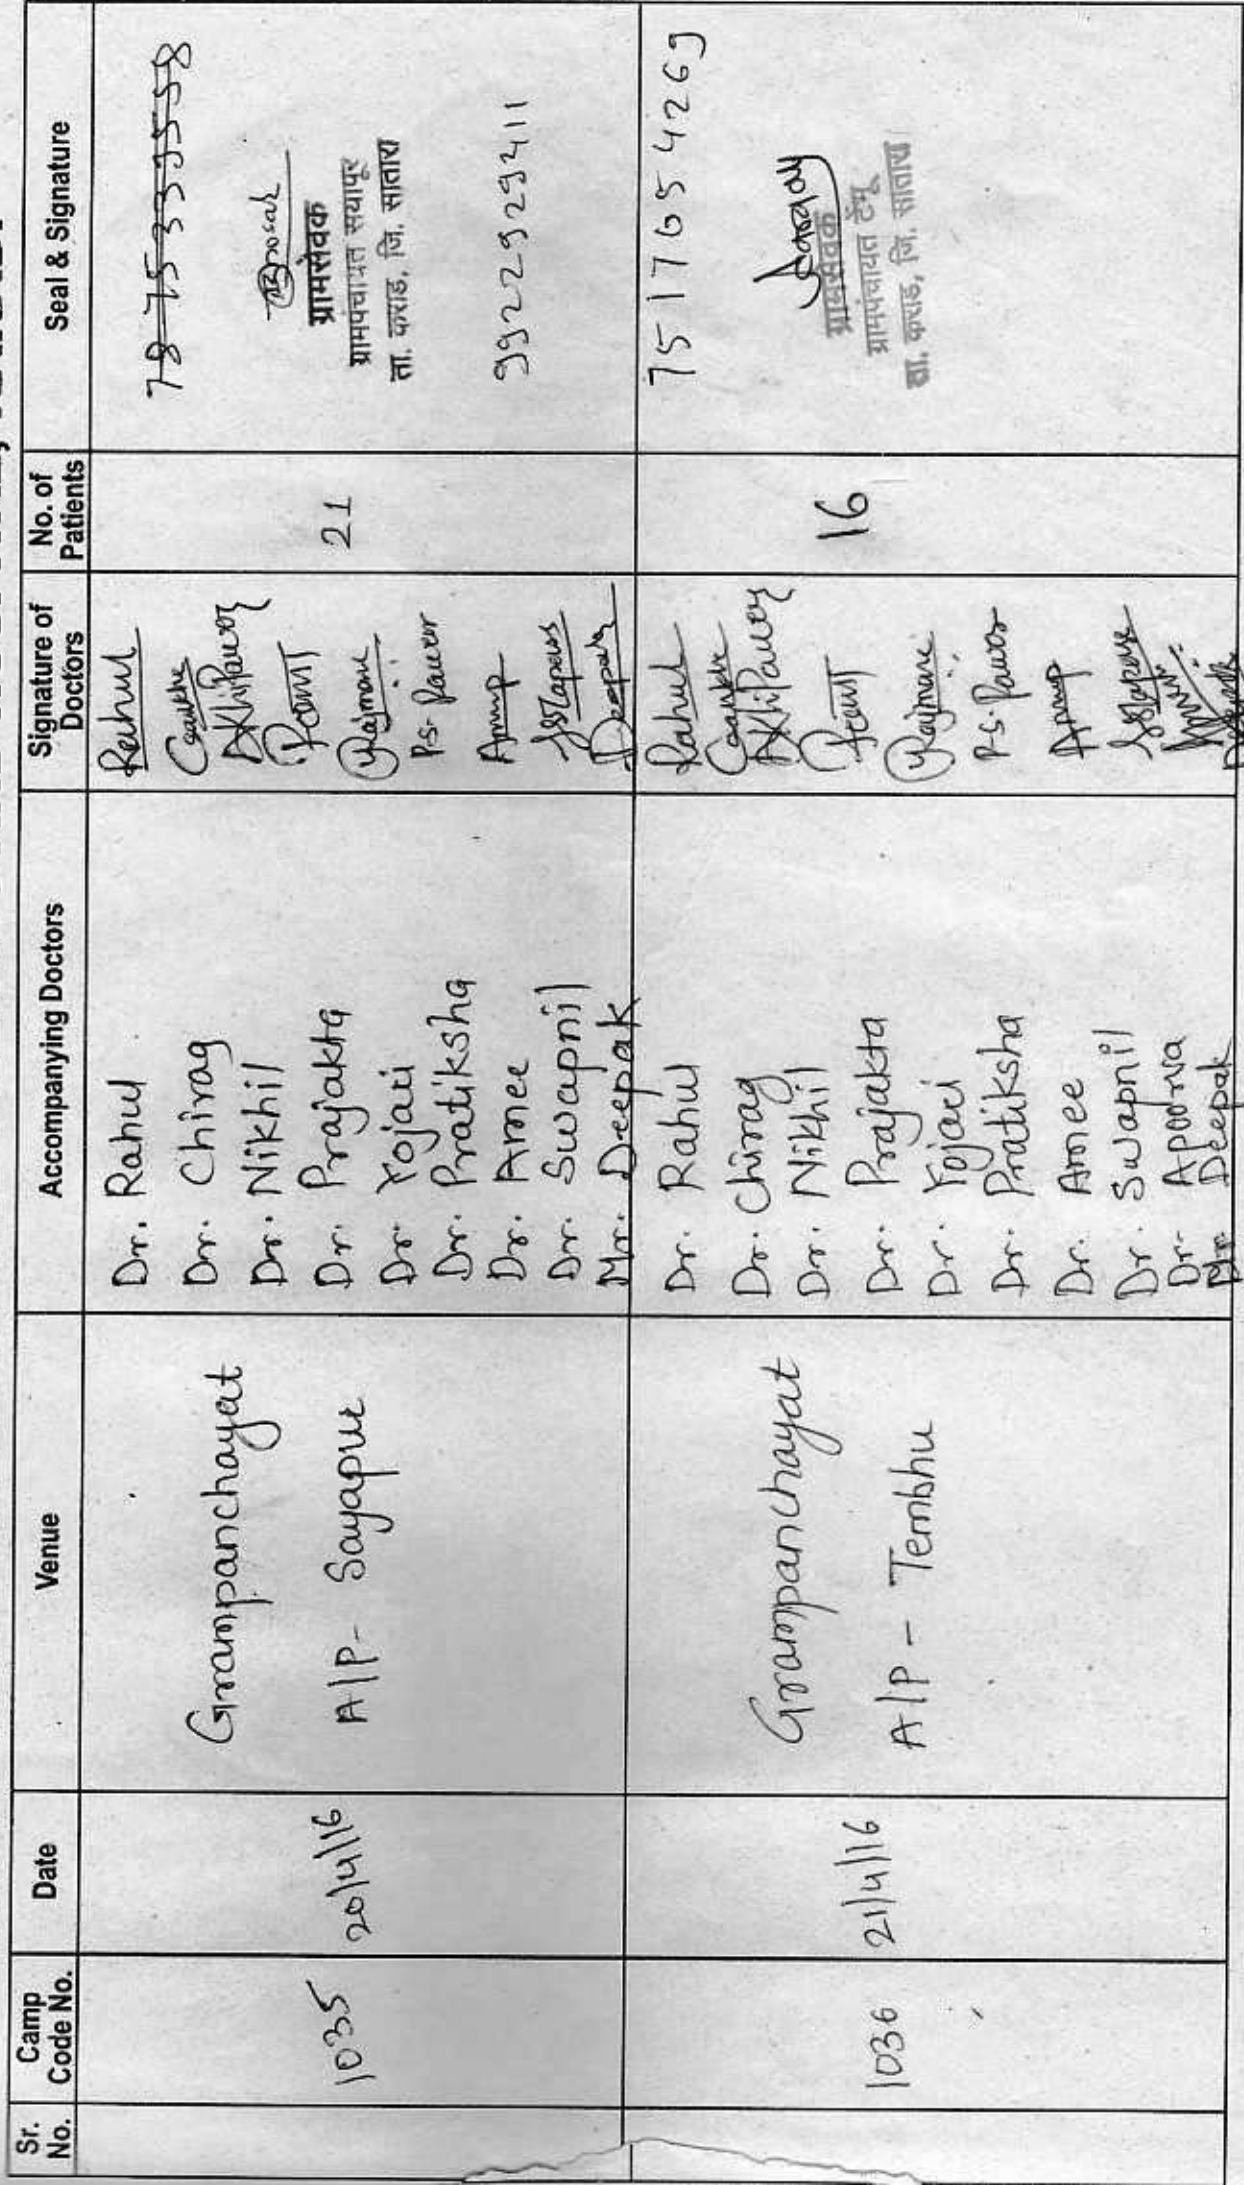 Sr. No.
Camp Code No.
Date
Venue
Accompanying Doctors
Signature of Doctors
No. of Patients
Seal & Signature
1035
20/4/16
Grampanchayat
A/P - Sayapur
Dr. Rahul
Dr. Chirag
Dr. Nikhil
Dr. Prajakta
Dr. Yojati
Dr. Pratiksha
Dr. Amee
Dr. Swapnil
Mr. Deepak
Rahul
P.S. Pawar
Deepak
21
7875339558
ग्रामसेवक
ग्रामपंचायत सयापूर
ता. कराड, जि. सातारा
9922929411
1036
21/4/16
Grampanchayat
A/P - Tembhu
Dr. Rahul
Dr. Chirag
Dr. Nikhil
Dr. Prajakta
Dr. Yojaci
Dr. Pratiksha
Dr. Amee
Dr. Swapnil
Dr. Apoorva
Mr. Deepak
Rahul
P.S. Pawar
16
7517654269
ग्रामसेवक
ग्रामपंचायत टेंभू
ता. कराड, जि. सातारा